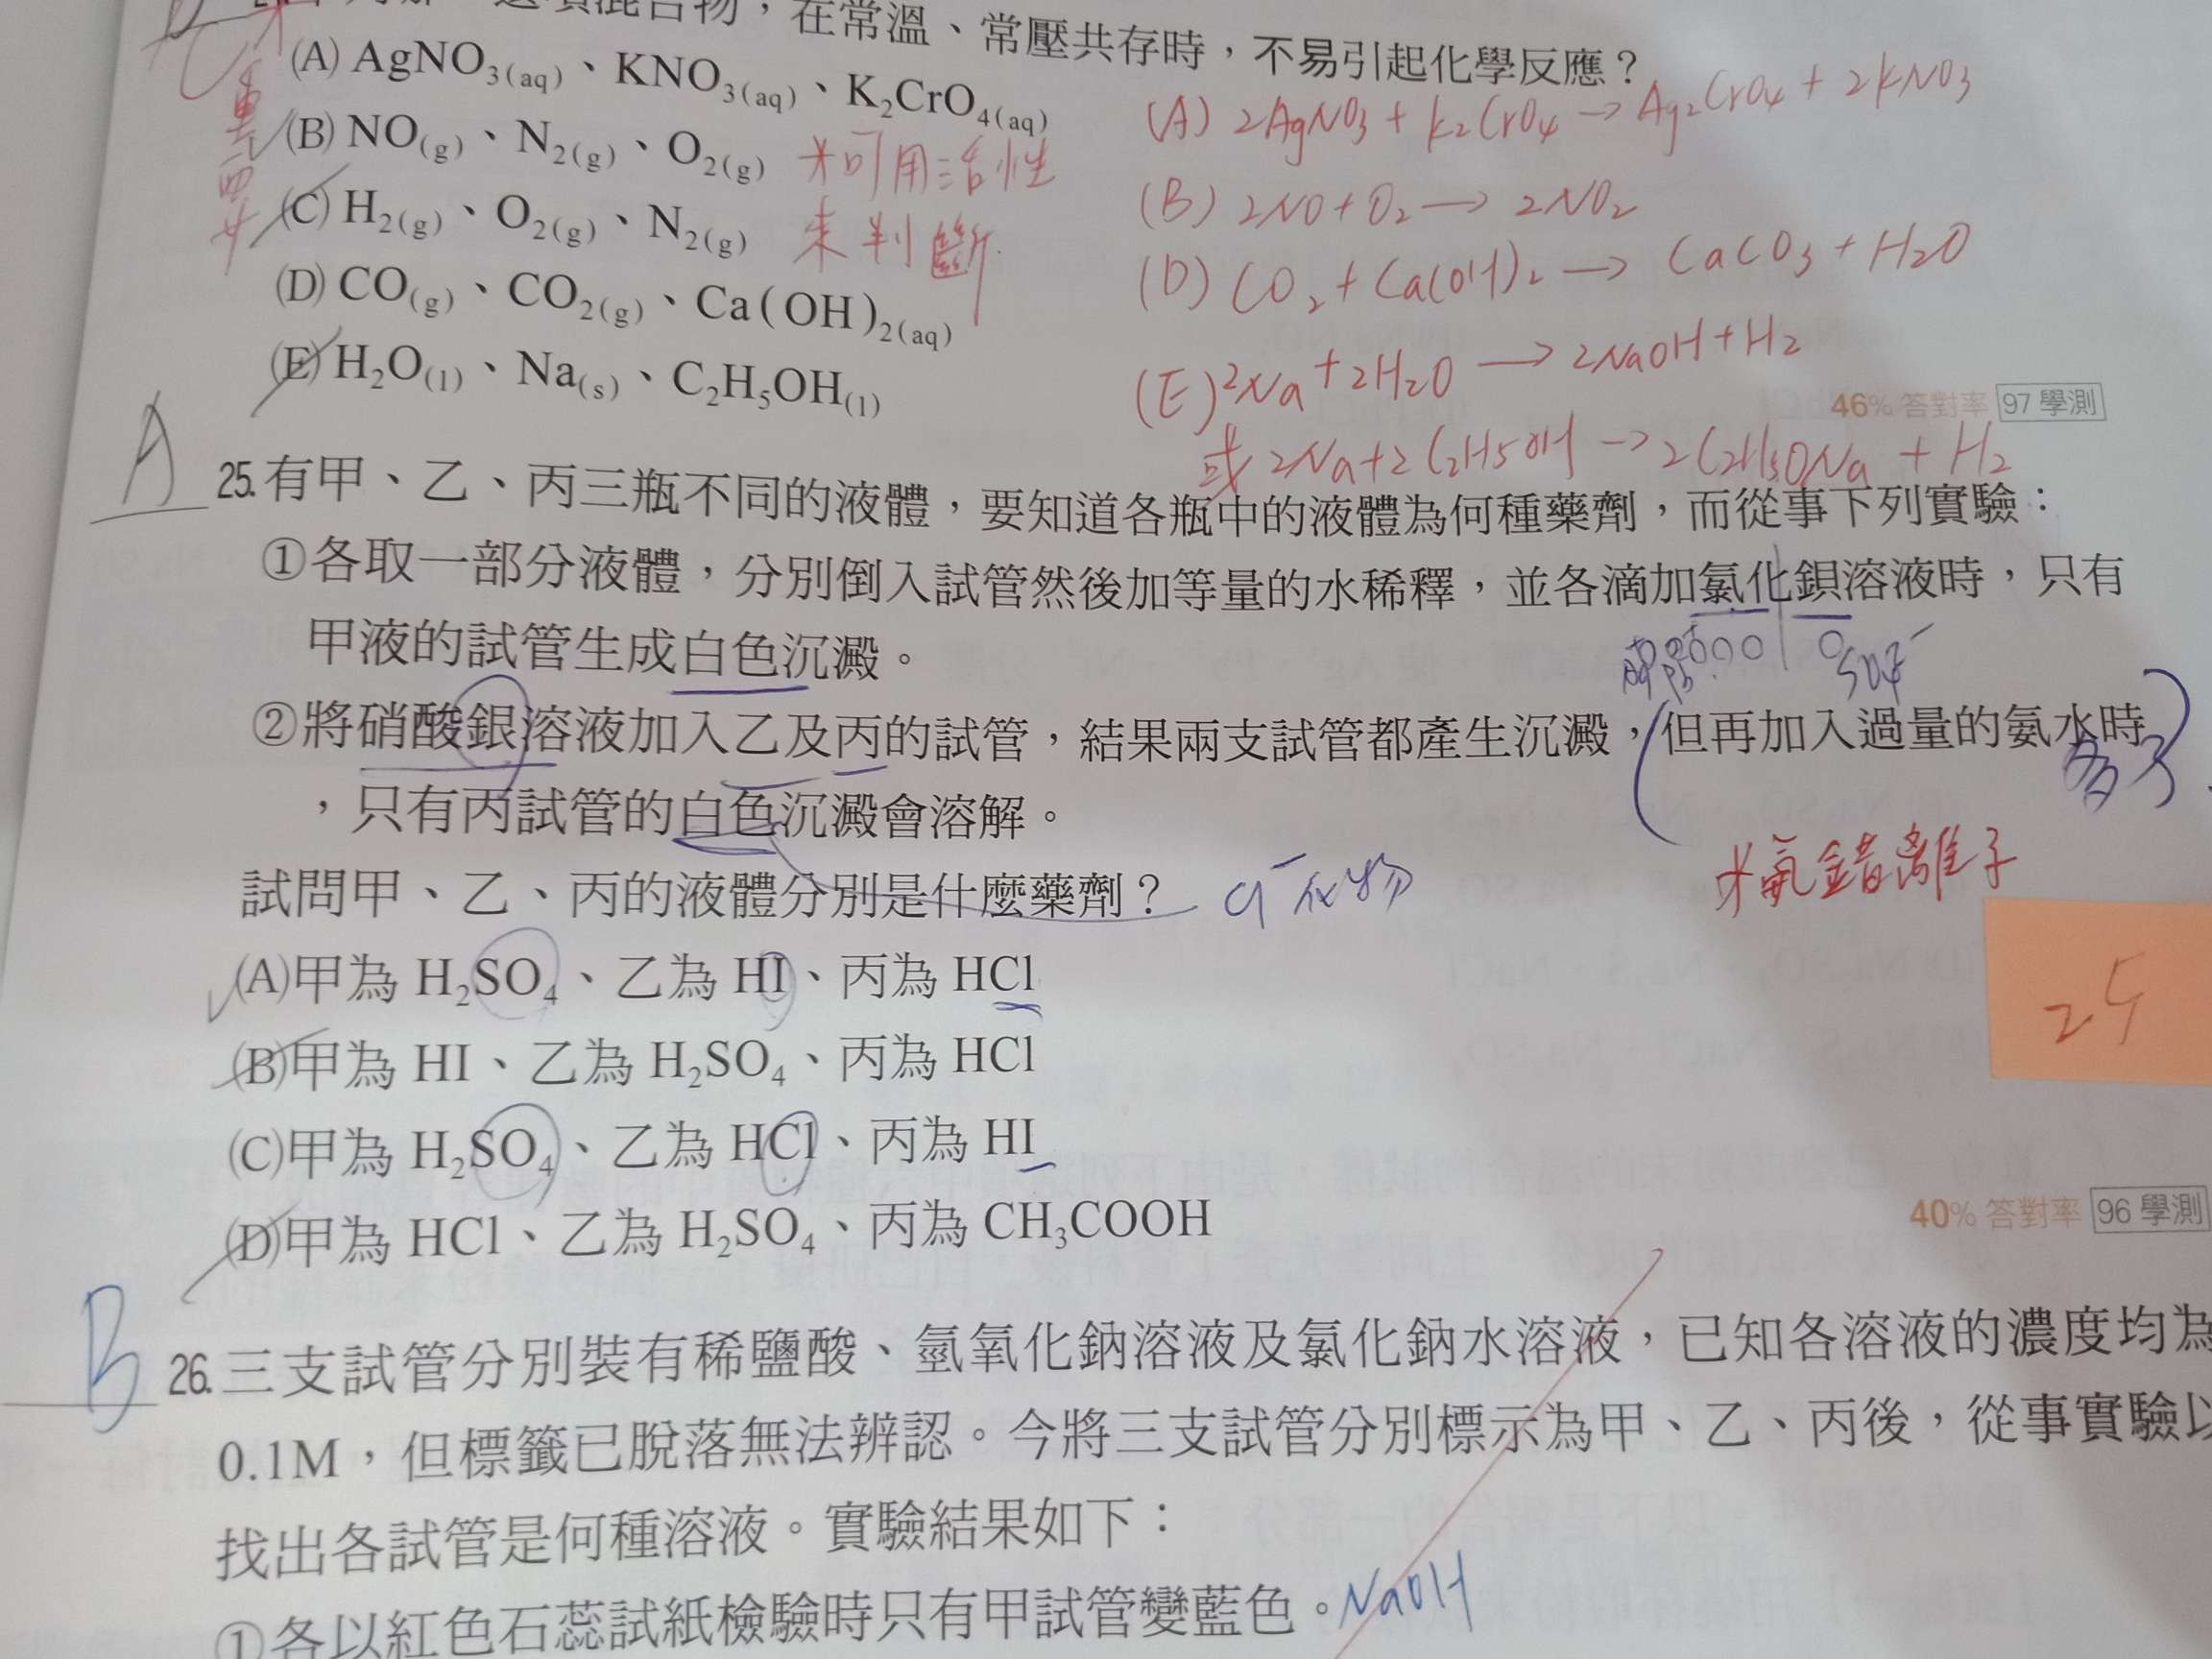 混合物，在常溫、常壓共存時，不易引起化學反應？
(A) AgNO₃(aq)、KNO₃(aq)、K₂CrO₄(aq)
(A) 2AgNO₃ + K₂CrO₄ → Ag₂CrO₄ + 2KNO₃
(B) NO(g)、N₂(g)、O₂(g)
可用活性
(B) 2NO + O₂ → 2NO₂
(C) H₂(g)、O₂(g)、N₂(g)
來判斷
(D) CO(g)、CO₂(g)、Ca(OH)₂(aq)
(D) CO₂ + Ca(OH)₂ → CaCO₃ + H₂O
(E) H₂O(l)、Na(s)、C₂H₅OH(l)
(E) 2Na + 2H₂O → 2NaOH + H₂
46% 答對率 97 學測
或 2Na + 2C₂H₅OH → 2C₂H₅ONa + H₂
A
25. 有甲、乙、丙三瓶不同的液體，要知道各瓶中的液體為何種藥劑，而從事下列實驗：
①各取一部分液體，分別倒入試管然後加等量的水稀釋，並各滴加氯化鋇溶液時，只有
甲液的試管生成白色沉澱。
SO₄²⁻
②將硝酸銀溶液加入乙及丙的試管，結果兩支試管都產生沉澱，但再加入過量的氨水時
多了
，只有丙試管的白色沉澱會溶解。
氨錯離子
試問甲、乙、丙的液體分別是什麼藥劑？
Cl⁻化物
(A)甲為 H₂SO₄、乙為 HI、丙為 HCl
25
(B)甲為 HI、乙為 H₂SO₄、丙為 HCl
(C)甲為 H₂SO₄、乙為 HCl、丙為 HI
(D)甲為 HCl、乙為 H₂SO₄、丙為 CH₃COOH
40% 答對率 96 學測
B
26. 三支試管分別裝有稀鹽酸、氫氧化鈉溶液及氯化鈉水溶液，已知各溶液的濃度均為
0.1M，但標籤已脫落無法辨認。今將三支試管分別標示為甲、乙、丙後，從事實驗以
找出各試管是何種溶液。實驗結果如下：
①各以紅色石蕊試紙檢驗時只有甲試管變藍色。
NaOH